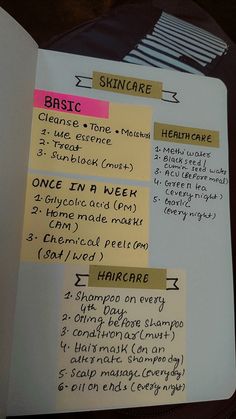 SKINCARE
BASIC
Cleanse • Tone • Moisturi
1. use essence
2. Treat
3. Sunblock (must)
ONCE IN A WEEK
1. Glycolic acid (PM)
2. Home made masks
(AM)
3. Chemical peels (PM)
(Sat/Wed)
HEALTHCARE
1. Methi water
2. Black seed /
cumin seed water
3. ACV (Before meal)
4. Green tea
(every night)
5. Garlic
(every night)
HAIRCARE
1. Shampoo on every
4th Day
2. Oiling before shampoo
3. Conditionar (must)
4. Hair mask (on an
alternate shampoo day)
5. Scalp massage (everyday)
6. Oil on ends (every night)